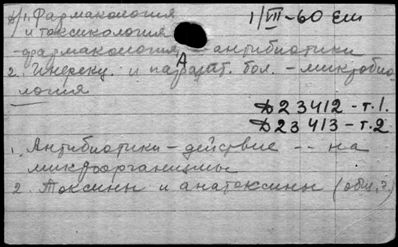 1. Фармакология
и токсикология
1/VII-60 Еш
-фармакология - антибиотики
2. Инфекц. и паразит. бол. - микробио-
логия
Д23412 - т.1.
Д23413 - т.2
1. Антибиотики - действие -- на
микроорганизмы
2. Токсины и анатоксины (общ.?)